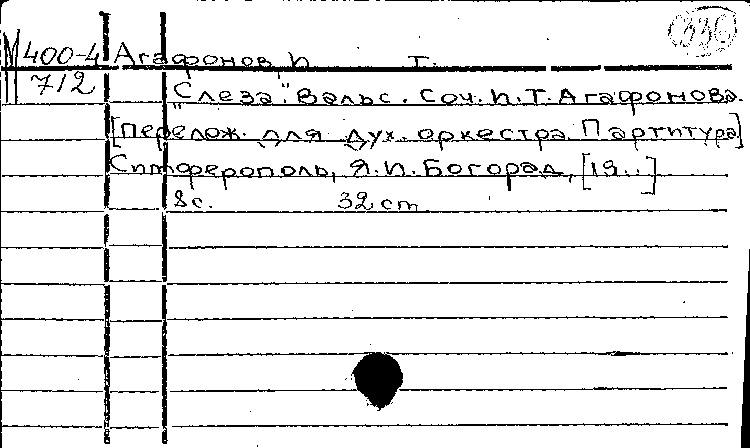 330
М400-4 Агафонов, И. Т.
712
"Слеза". Вальс. Соч. И.Т. Агафонова.
[Перелож. для дух. оркестра. Партитура]
Симферополь, Я.И. Богорад, [19..]
8с. 32 cm